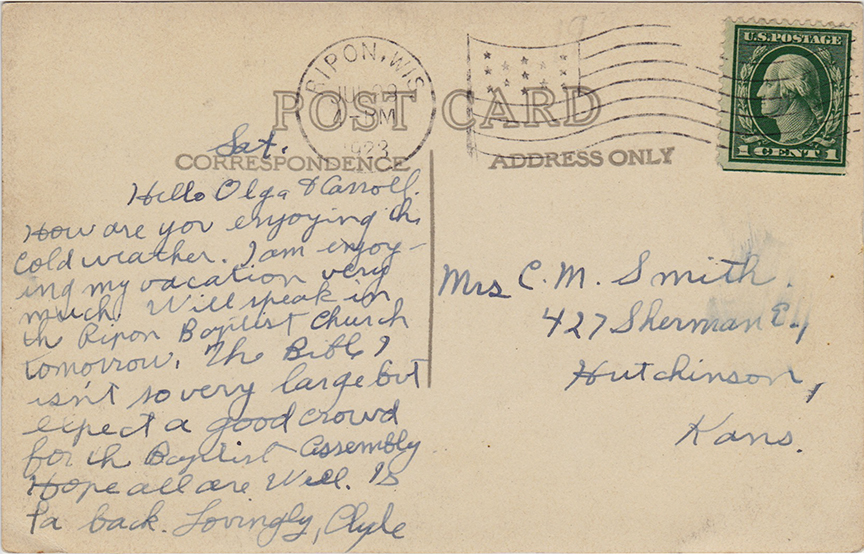 RIPON, WIS.
JUL 28
4-PM
1923
U.S. POSTAGE
1 CENT 1
POST CARD
CORRESPONDENCE
ADDRESS ONLY
Sat.
Hello Olga & Carroll.
How are you enjoying th
cold weather. I am enjoy-
ing my vacation very
much. Will speak in
th Ripon Baptist Church
tomorrow. The Bible
isn't so very large but
expect a good crowd
for th Baptist Assembly
Hope all are Well. Is
Pa back. Lovingly, Clyde
Mrs C. M. Smith.
427 Sherman E.,
Hutchinson,
Kans.